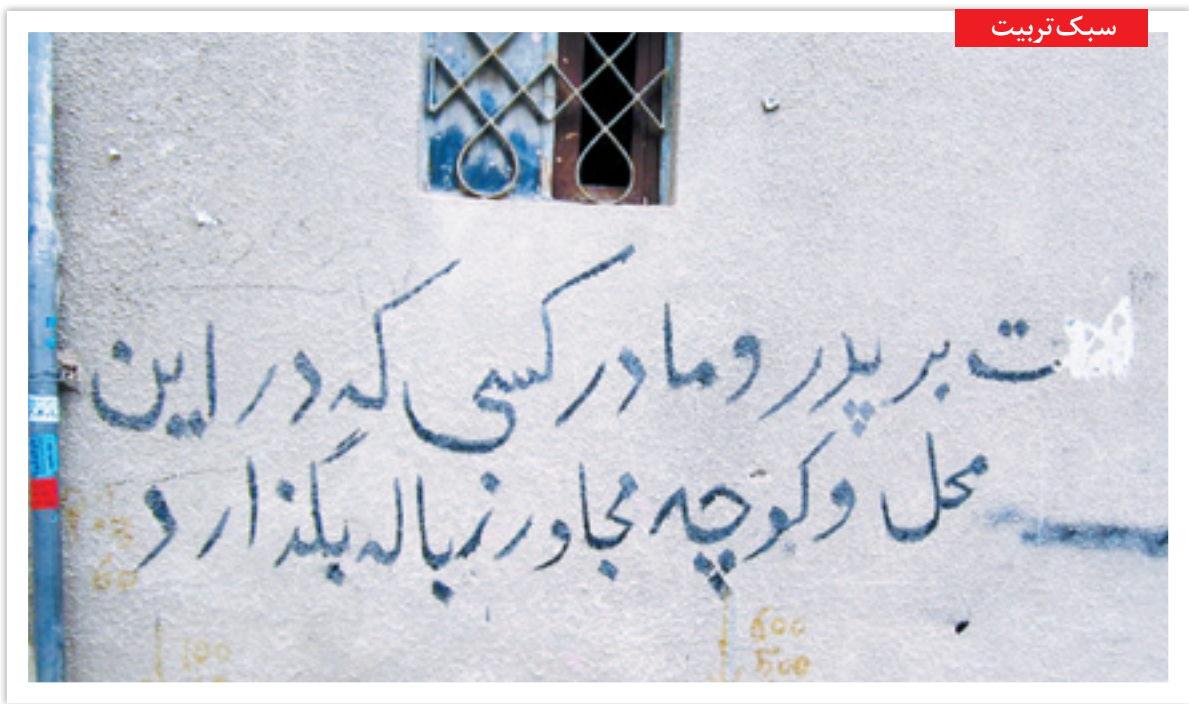 سبک تربیت
ت بر پدر و مادر کسی که در این
محل و کوچه مجاور زباله بگذارد
100
600
500
60